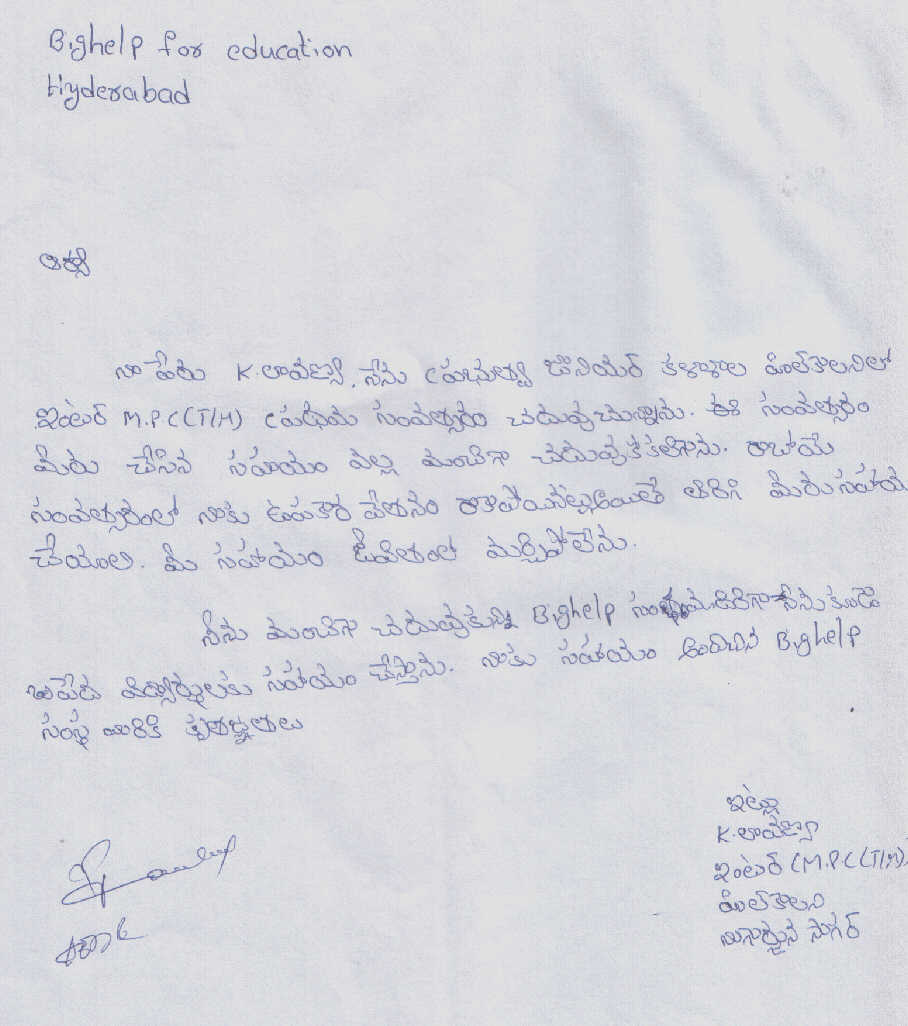 Bighelp for education
Hyderabad
ఆర్యా
నా పేరు K.లావణ్య, నేను ప్రభుత్వ జూనియర్ కళాశాల హిల్‌కాలనిలో
ఇంటర్ M.P.C(T/M) ప్రథమ సంవత్సరం చదువుచున్నాను. ఈ సంవత్సరం
మీరు చేసిన సహాయం వల్ల మంచిగా చదువుకోకలిగాను. రాబోయే
సంవత్సరంలో నాకు ఉపకార వేతనం తిరిగి మీరు సహాయం
చేయాలి. మీ సహాయం జీవితంలో మర్చిపోలేను.
నేను మంచిగా చదువుకుని Bighelp నేను కూడా
విద్యార్థులకు సహాయం చేస్తాను. నాకు సహాయం అందించిన Bighelp
సంస్థ వారికి కృతజ్ఞతలు
ఇట్లు
K.లావణ్య
ఇంటర్ (M.P.C(T/M).
హిల్‌కాలని
నాగార్జున సాగర్